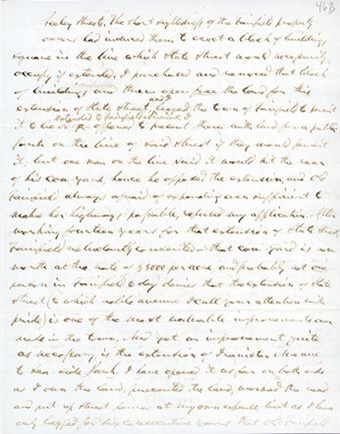 46B
Seeley Streets. The short sightedness of the Fairfield property
owners had induced them to erect a block of buildings
square in the line which State Street would necessarily
occupy if extended. I purchased and removed that block
of buildings and threw open free the land for this
extension of State Street, and I begged the town of Fairfield to permit
it to be extended to Fairfield &
I offered to present them with land for a public
park on the line of said Street if they would permit
it, but one man on the line said it would hit the rear
of his cow yard, hence he opposed the extension, and Old
Fairfield always afraid of expending even sufficient to
make her highways passable, refused my application. After
working fourteen years for that extension of State Street
Fairfield reluctantly consented & that cow yard is now
worth at the rate of $5000 per acre and probably not one
person in Fairfield to day denies that the extension of State
Street (to which noble avenue I call your attention with
pride) is one of the most valuable improvements ever
made in the town. And yet an improvement quite
as necessary, is the extension of Iranistan Avenue
to sea side Park. I have opened it as far on both ends
as I own the land, presented the land, worked the road
and put up street fences at my own expense, but as I have
only begged, for six consecutive years that Old Fairfield